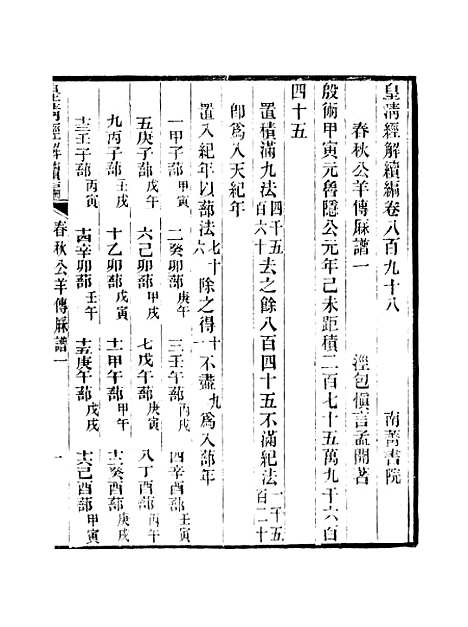 皇清經解續編卷八百九十八　南菁書院
春秋公羊傳厤譜一　涇包愼言孟開著
殷術甲寅元魯隱公元年己未距積二百七十五萬九千六百
四十五
置積滿元法四千五百六十去之餘八百四十五不滿紀法一千五百二十
卽爲入天紀年
置入紀年以蔀法七十六除之得十一不盡九爲入蔀年
一甲子蔀甲寅　二癸卯蔀庚午　三壬午蔀丙戌　四辛酉蔀壬寅
五庚子蔀戊午　六己卯蔀甲戌　七戊午蔀庚寅　八丁酉蔀丙午
九丙子蔀壬戌　十乙卯蔀戊寅　十一甲午蔀甲午　十二癸酉蔀庚戌
十三壬子蔀丙寅　十四辛卯蔀壬午　十五庚午蔀戊戌　十六己酉蔀甲寅
皇清經解續編　春秋公羊傳厤譜一　一